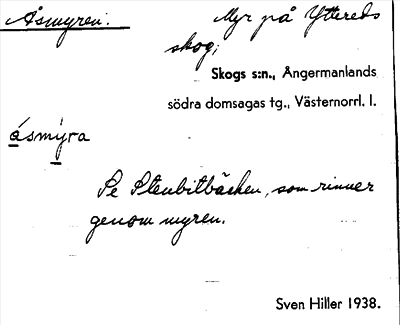 Åsmyren. Myr på Yttereds
skog;
Skogs s:n., Ångermanlands
södra domsagas tg., Västernorrl. l.
åsmýra
Se Stenbitbäcken, som rinner
genom myren.
Sven Hiller 1938.